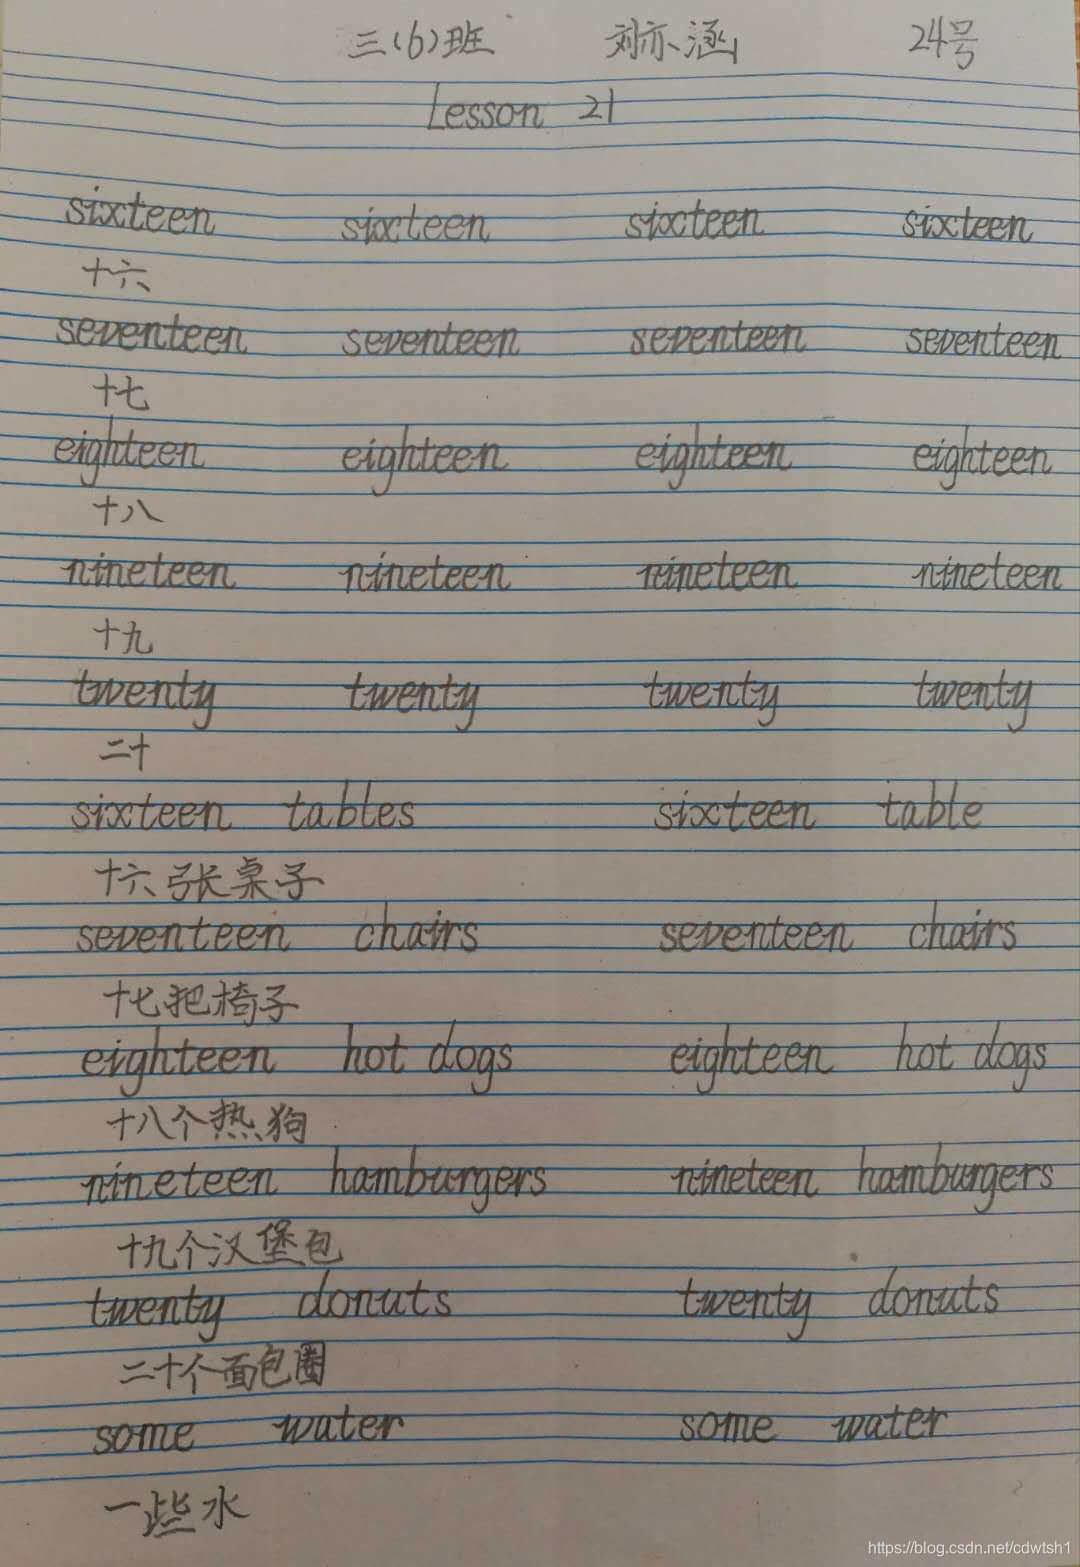 三(6)班 刘亦涵 24号
Lesson 21
sixteen sixteen sixteen sixteen
十六
seventeen seventeen seventeen seventeen
十七
eighteen eighteen eighteen eighteen
十八
nineteen nineteen nineteen nineteen
十九
twenty twenty twenty twenty
二十
sixteen tables sixteen table
十六张桌子
seventeen chairs seventeen chairs
十七把椅子
eighteen hot dogs eighteen hot dogs
十八个热狗
nineteen hamburgers nineteen hamburgers
十九个汉堡包
twenty donuts twenty donuts
二十个面包圈
some water some water
一些水
https://blog.csdn.net/cdwtsh1